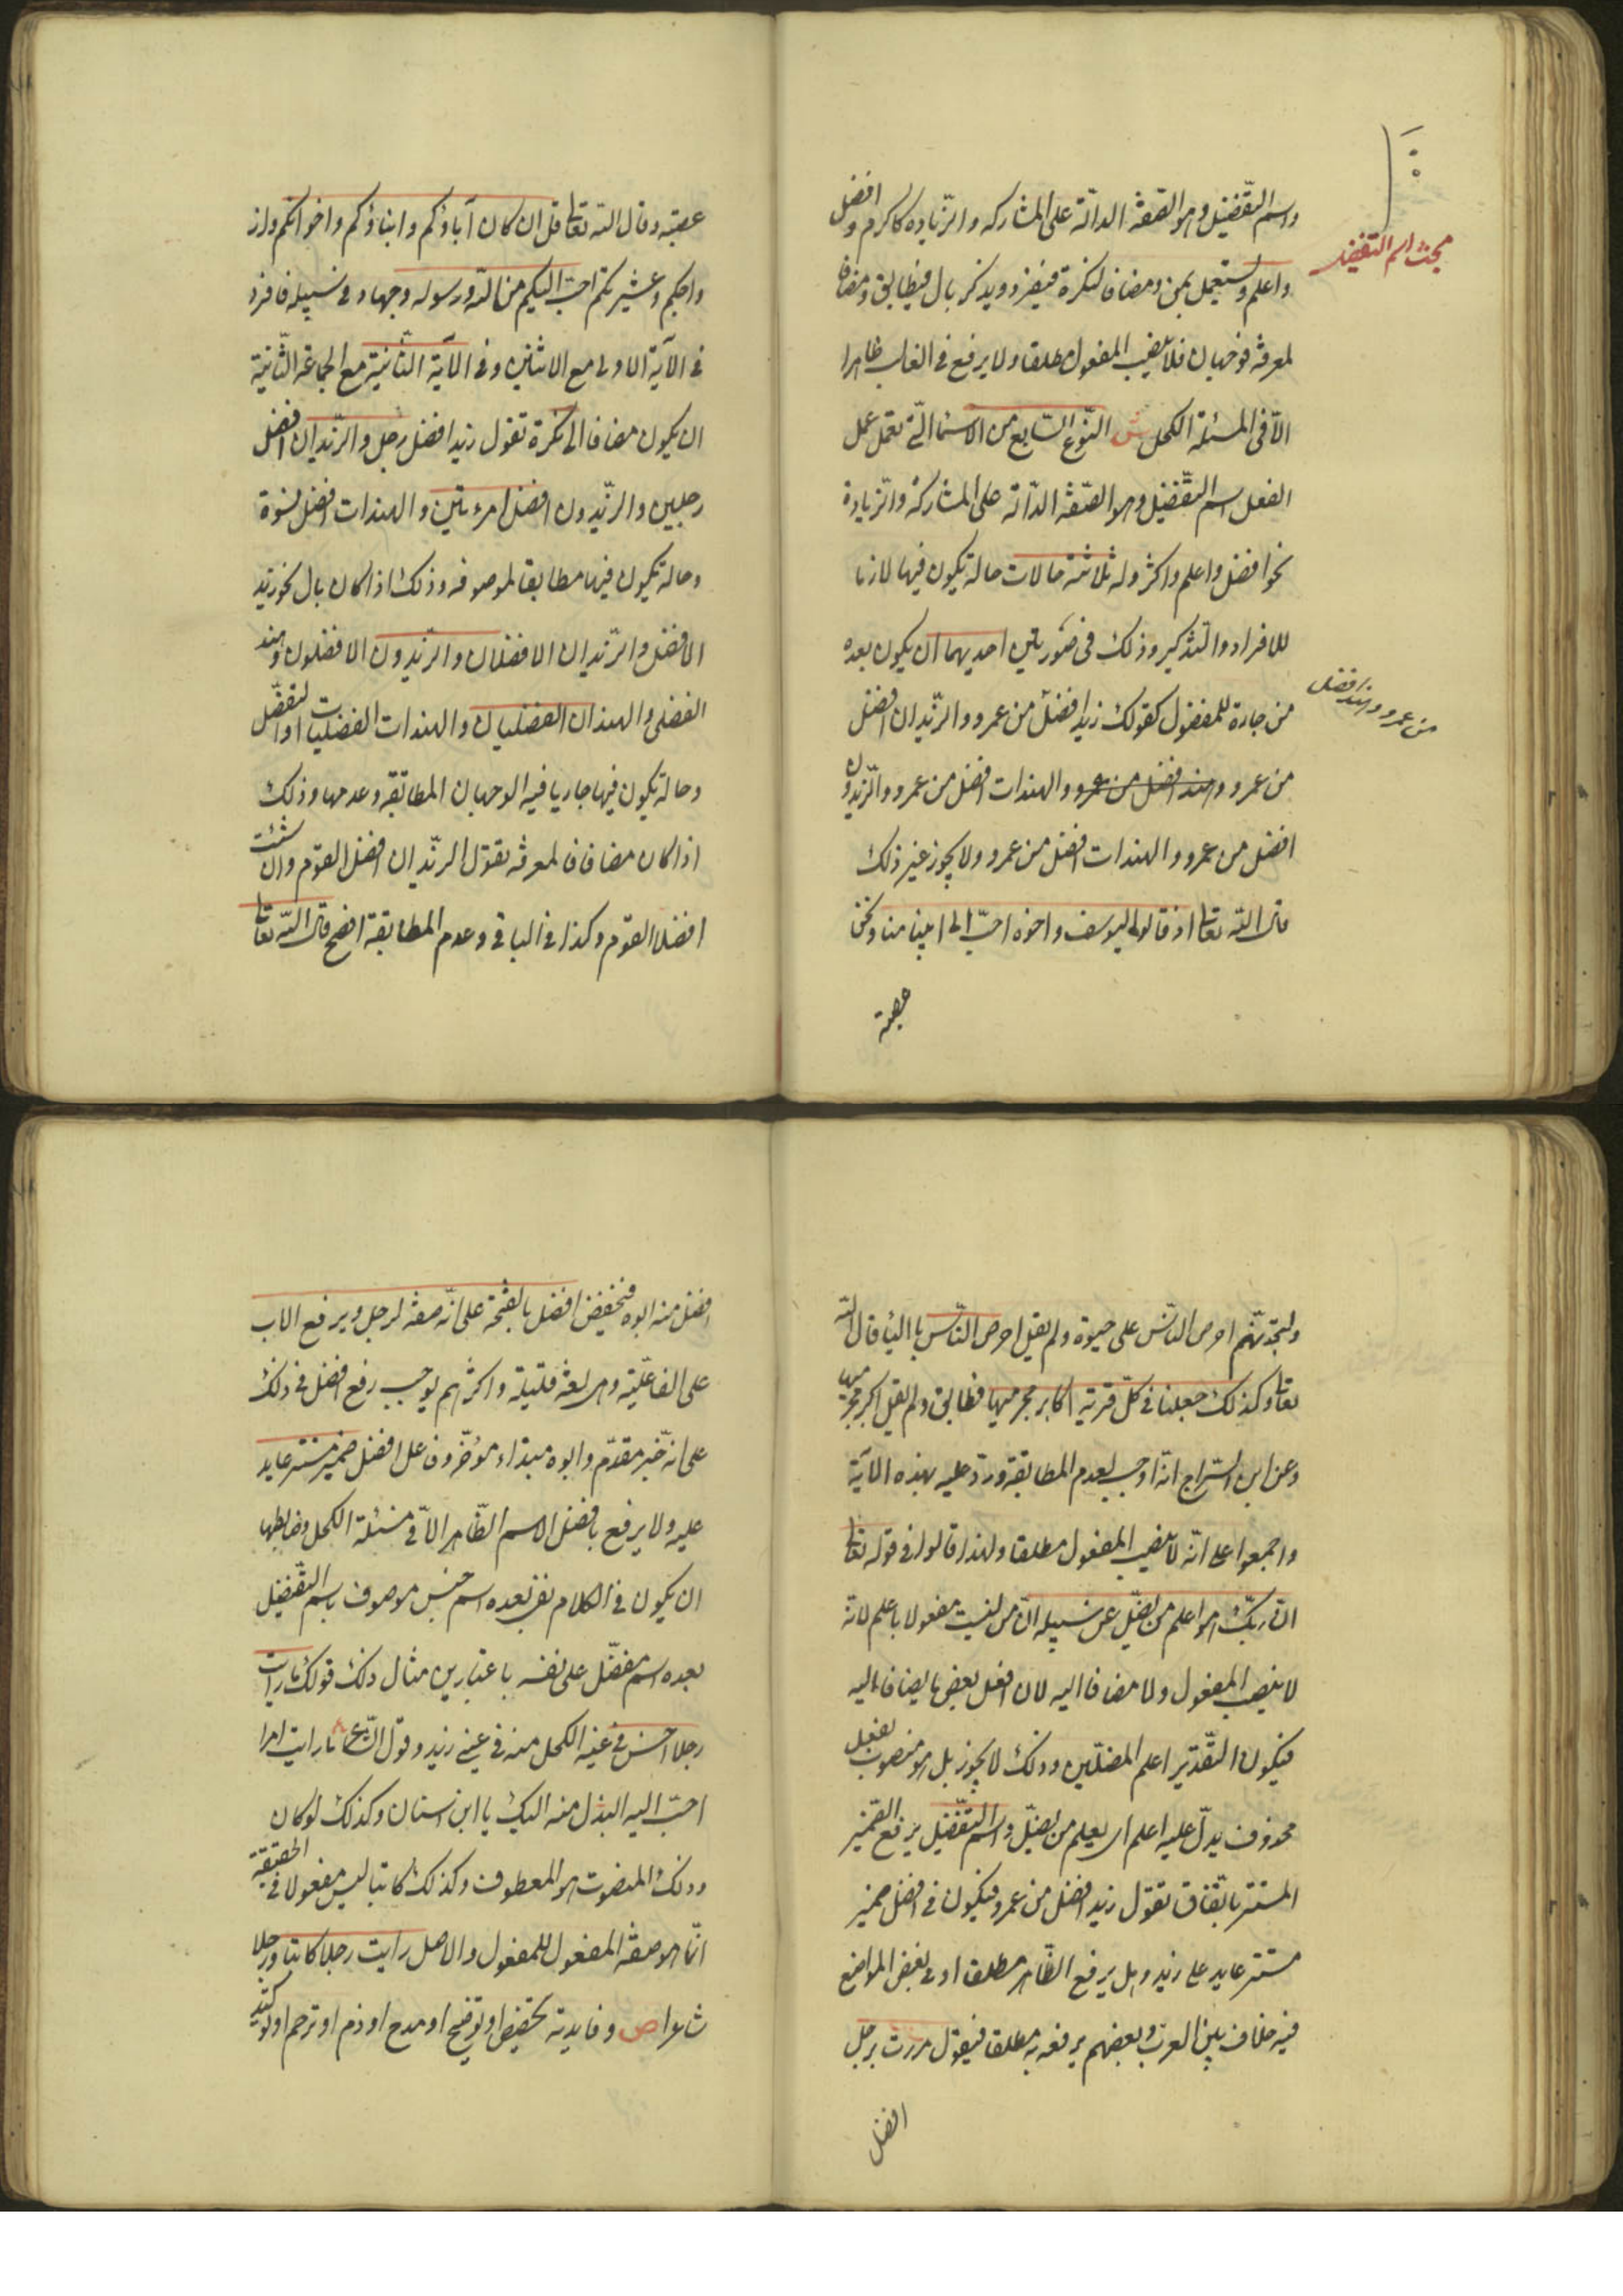 مبحث اسم التفضيل
واسم التفضيل وهو الصفة الدالة على المشاركة والزيادة كاكرم وافضل
واعلم ويستعمل بمن ومضافا لنكرة فيفرد ويذكر بال فيطابق ومضافا
لمعرفة فوجهان فلا ينصب المفعول مطلقا ولا يرفع في الغالب ظاهرا
الا في المسئلة الكحل ش النوع السابع من الاسماء التي تعمل عمل
الفعل اسم التفضيل وهو الصفة الدالة على المشاركة والزيادة
نحو افضل واعلم واكثر وله ثلاثة حالات حالة يكون فيها لازما
للافراد والتذكير وذلك في صورتين احديهما ان يكون بعده
من جارة للمفضول كقولك زيد افضل من عمرو والزيدان افضل
من عمرو وهند افضل
من عمرو وهند افضل من عمرو والهندات افضل من عمرو والزيدون
افضل من عمرو والهندات افضل من عمرو ولا يجوز غير ذلك
قال الله تعالى اذ قالوا ليوسف واخوه احب الى ابينا منا ونحن
عصبة
عصبة وقال الله تعالى قل ان كان آباؤكم وابناؤكم واخوانكم واز
واجكم وعشيرتكم احب اليكم من الله ورسوله وجهاد في سبيله فافرد
في الآية الاولى مع الاثنين وفي الآية الثانية مع الجماعة الثانية
ان يكون مضافا الى نكرة تقول زيد افضل رجل والزيدان افضل
رجلين والزيدون افضل امرءتين والهندات افضل نسوة
وحالة يكون فيها مطابقا لموصوفه وذلك اذا كان بال نحو زيد
الافضل والزيدان الافضلان والزيدون الافضلون وهند
الفضلى والهندان الفضليان والهندات الفضليات او الفضل
وحالة يكون فيها جاريا فيه الوجهان المطابقة وعدمها وذلك
اذا كان مضافا لمعرفة تقول الزيدان افضل القوم وان شئت
افضلا القوم وكذا في الباقي وعدم المطابقة افصح قال الله تعالى
ولتجدنهم احرص الناس على حيوة ولم يقل احرص الناس باالياء قال الله
تعالى وكذلك جعلنا في كل قرية اكابر مجرميها فطابق ولم يقل اكبر مجرميها
وعن ابن السراج انه اوجب لعدم المطابقة ورد عليه بهذه الآية
واجمعوا على انه لا ينصب المفعول مطلقا ولهذا قالوا في قوله تعالى
ان ربك هو اعلم من يضل عن سبيله ان من ليست مفعولا باعلم لانه
لا ينصب المفعول ولا مضافا اليه لان افعل بعض ما يضاف اليه
فيكون التقدير اعلم المضلين وذلك لا يجوز بل هو منصوب بفعل
محذوف يدل عليه اعلم اى يعلم من يضل واسم التفضيل يرفع الضمير
المستتر باتفاق تقول زيد افضل من عمرو فيكون في افضل ضمير
مستتر عايد على زيد وهل يرفع الظاهر مطلقا او في بعض المواضع
فيه خلاف بين العرب وبعضهم يرفعه به مطلقا فيقول مررت برجل
افضل
افضل منه ابوه فتخفض افضل بالفتحة على انه صفة لرجل ويرفع الاب
على الفاعلية وهى لغة قليلة واكثرهم يوجب رفع افضل في ذلك
على انه خبر مقدم وابوه مبتداء مؤخر وفاعل افضل ضمير مستتر عايد
عليه ولا يرفع بافضل الاسم الظاهر الا في مسئلة الكحل وضابطها
ان يكون في الكلام نفى بعده اسم جنس موصوف باسم التفضيل
بعده اسم مفضل على نفسه باعتبارين مثال ذلك قولك ما رايت
رجلا احسن في عينه الكحل منه في عين زيد وقول الشاعر ما رايت امرا
احب اليه البذل منه اليك يا ابن سنان وكذلك لو كان
وذلك المنصوب هو المعطوف وكذلك كاتبا ليس مفعولا في الحقيقة
انما هو صفة المفعول للمفعول والاصل رايت رجلا كاتبا ورجلا
شاعرا ص وفايدته تخصيص او توضيح او مدح او ذم او ترحم او توكيد